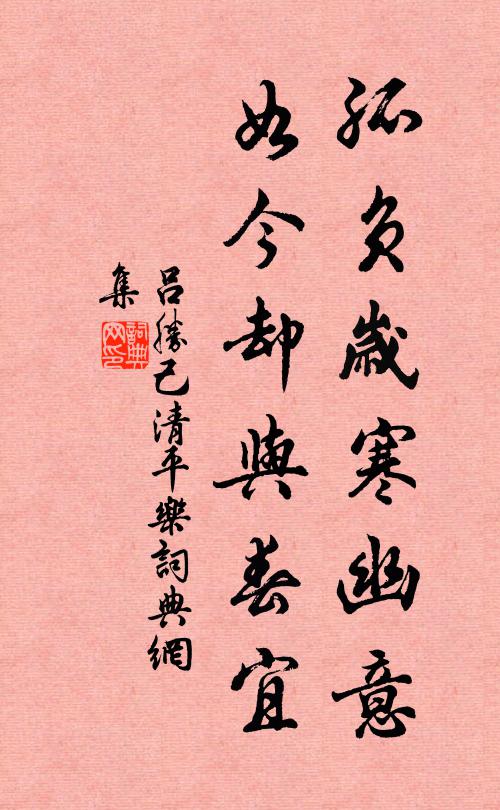 孤負歲寒幽意
如今却與春宜
呂勝己清平樂詞典網
集
詞典網印